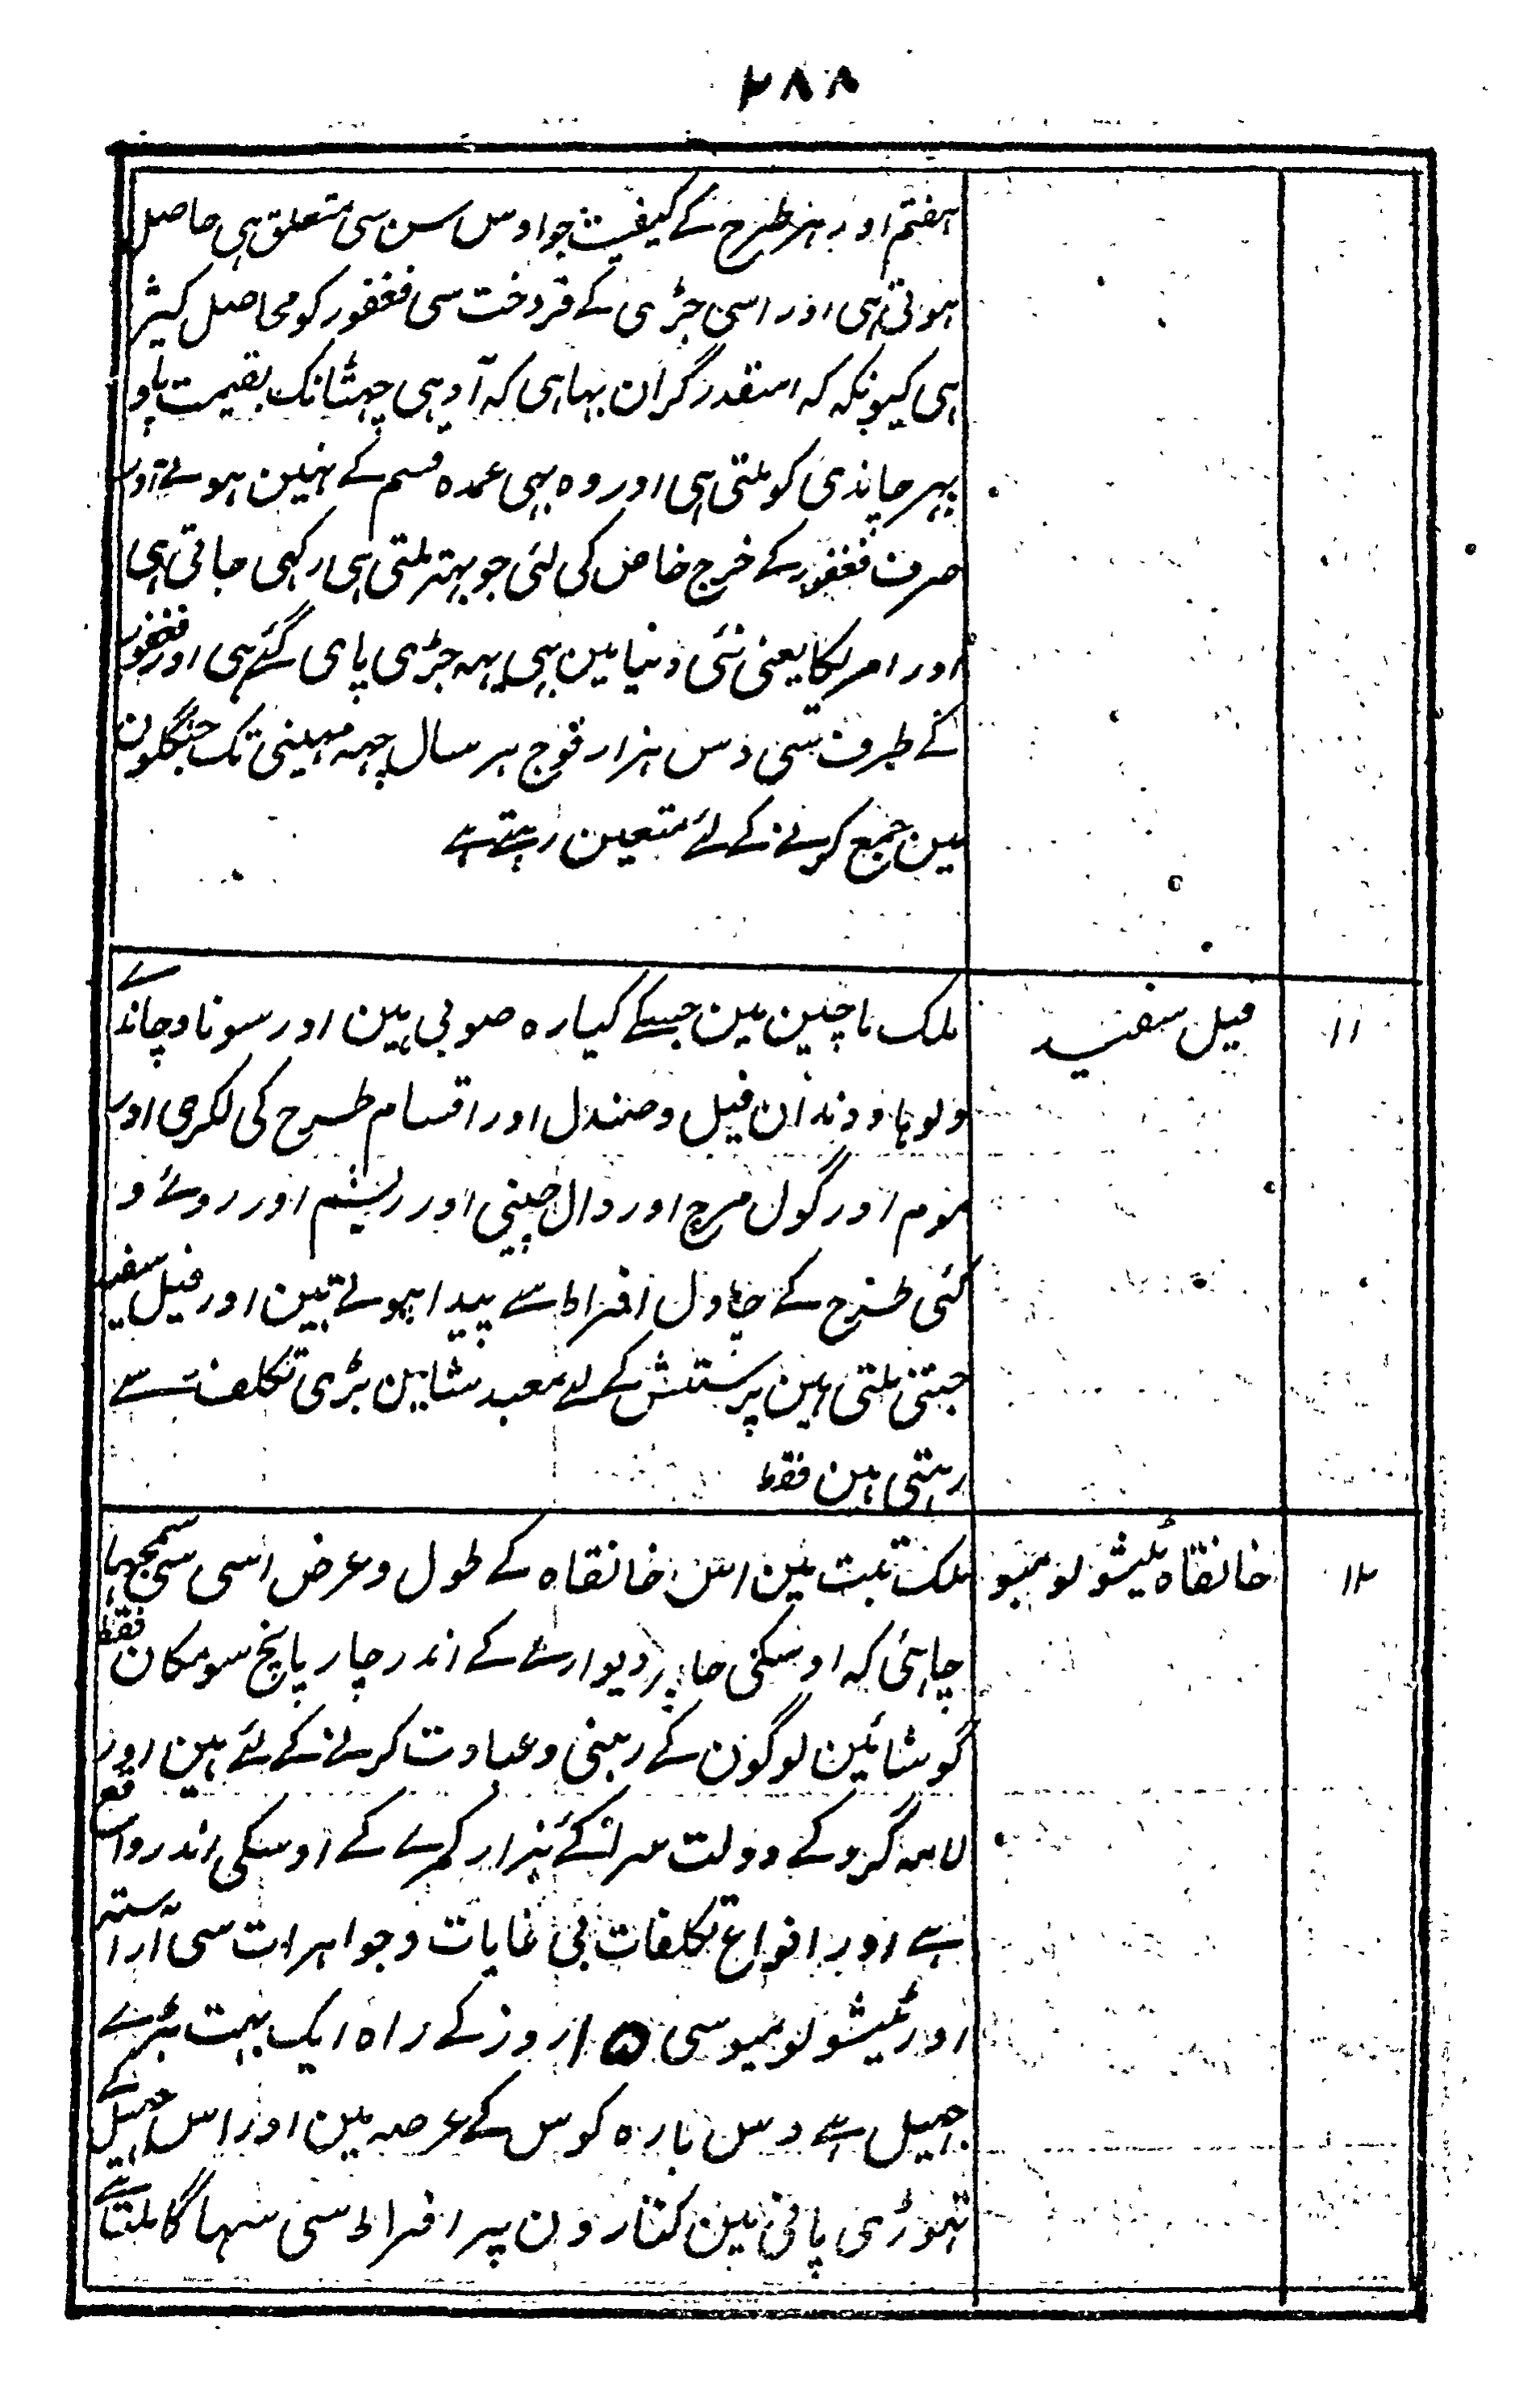 ۲۸۸
ہفتم اور ہر طرح کے کیفیت جو اوس سن سی متعلق ہی حاصل
ہوتی ہی اور اسی جڑی کے فروخت سی فغفور کو محاصل کثیر
ہی کیونکہ کہ اسقدر گران بہا ہی کہ آدہی چہٹانک بقیمت پاو
بہر چاندی کو ملتی ہی اور وہ بہی عمدہ قسم کے نہین ہوتے اور
صرف فغفور کے خرج خاص کی لئی جو بہتر ملتی ہی رکہی جاتی ہی
اور امریکا یعنی نئی دنیا مین بہی یہہ جڑی پای گئے ہی اور فغفور
کے طرف سی دس ہزار فوج ہر سال چہہ مہینی تک جنگلون
مین جمع کرنے کے لئے متعین رہتے ہے
۱۱ فیل سفید ملک ماچین مین جسکے گیارہ صوبی ہین اور سونا و چاندے
و لوہا و دندان فیل و صندل اور اقسام طرح کی لکڑی اور
موم اور گول مرچ اور دال چینی اور ریشم اور روئے و
کئی طرح کے چاول افراط سے پیدا ہوتے ہین اور فیل سفید
جتنی ملتی ہین پرستش کے لئے معبد مثابین بڑی تکلف سے
رہتی ہین فقط
۱۲ خانقاہ ٹیشو لومبو ملک تبت مین اس خانقاہ کے طول و عرض اسی سی سمجہا
چاہئی کہ اوسکی چار دیوارے کے اندر چار پانچ سو مکان فقط
گوشائین لوگون کے رہنی و عبادت کرنے کے لئے ہین اور
لامہ گرو کے دولت سرا کئے ہزار کمرے کے اوسکی اندر واقع
ہے اور انواع تکلفات بی غایات و جواہرات سی آراستہ
اور ٹیشو لومبو سی ۱۵ روز کے راہ ایک بہت بڑے
جہیل ہے دس بارہ کوس کے عرصہ مین اور اس جہیل کے
تہوڑی پانی مین کنارون پر افراط سی سہاگا ملتا ہے